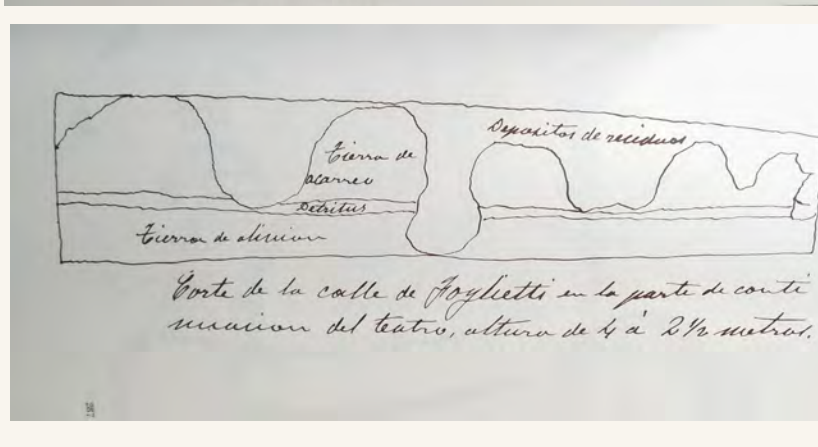 Depositos de residuos
Tierra de
acarreo
Detritus
Tierra de alivion
Corte de la calle de Foglietti en la parte de conti
nuacion del teatro, altura de 4 á 2½ metros.